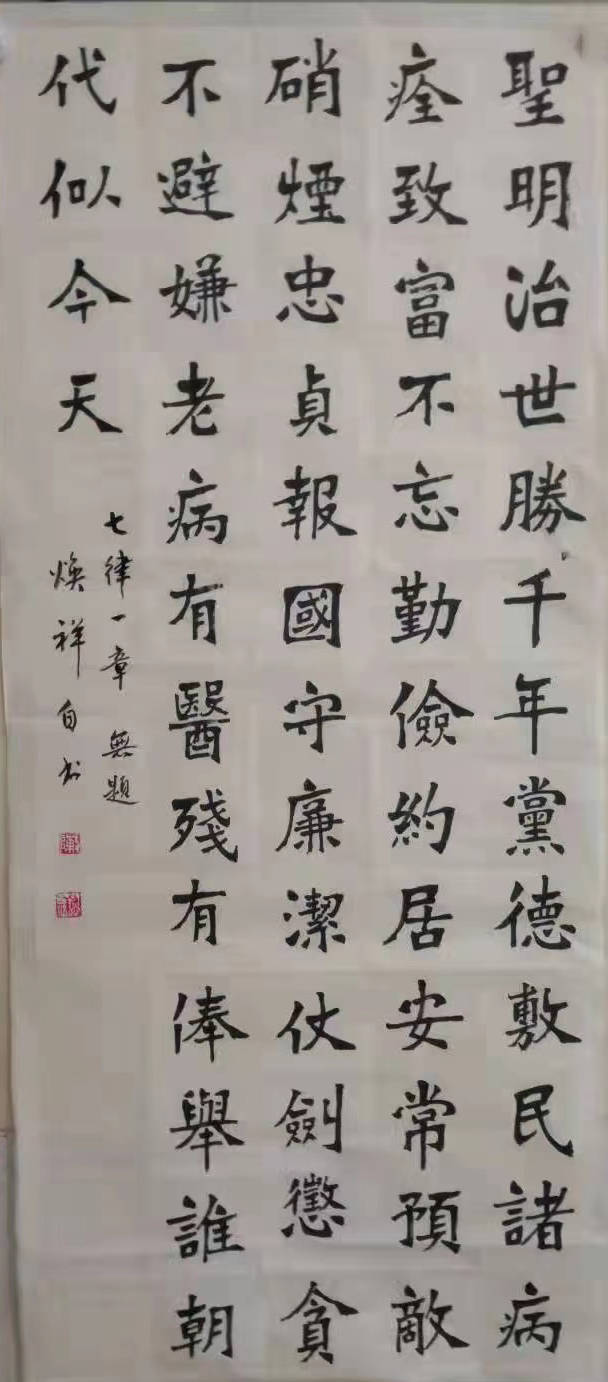 聖明治世勝千年黨德敷民諸病
痊致富不忘勤儉約居安常預敵
硝煙忠貞報國守廉潔仗劍懲貪
不避嫌老病有醫殘有俸舉誰朝
代似今天
七律一章 無題
煥祥自书